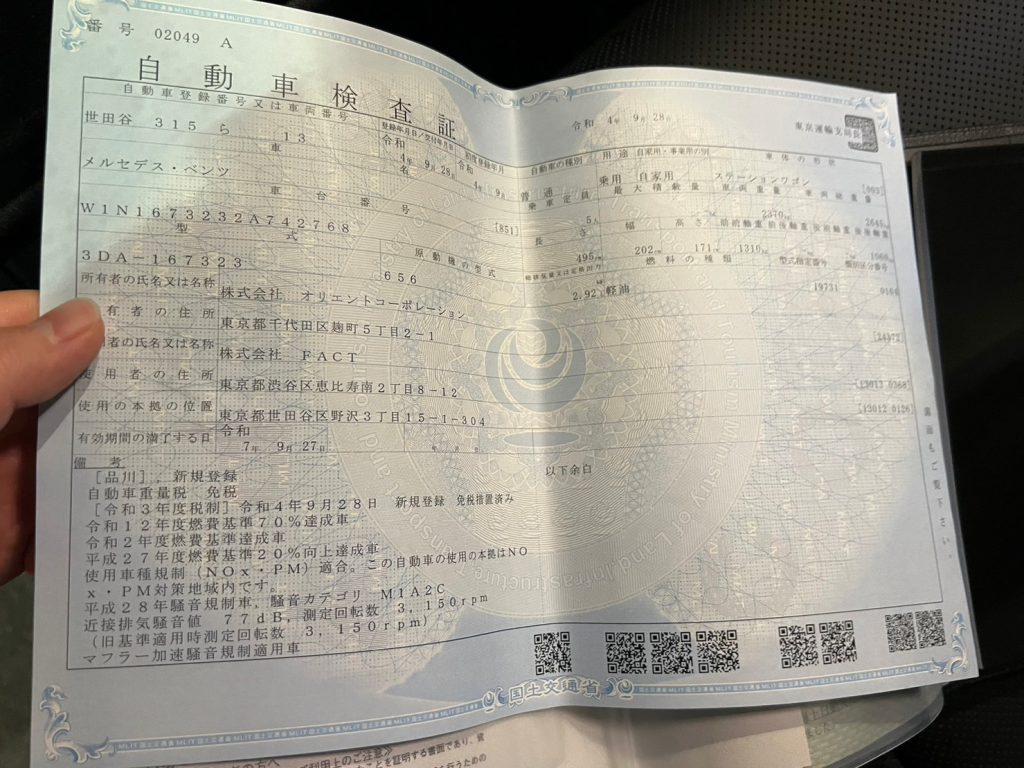 番号 02049 A
自動車検査証
令和 4年 9月 28日
東京運輸支局長
自動車登録番号又は車両番号
登録年月日/交付年月日
初度登録年月
自動車の種別
用途
自家用・事業用の別
車体の形状
世田谷 315 ら 13
令和 4年 9月 28日
令和 4年 9月
普通
乗用
自家用
ステーションワゴン
[003]
車名
乗車定員
最大積載量
車両重量
車両総重量
メルセデス・ベンツ
[851]
5人
2370kg
2645kg
車台番号
長さ
幅
高さ
前前軸重
前後軸重
後前軸重
後後軸重
W1N1673232A742768
495cm
202cm
171cm
1310kg
1060kg
型式
原動機の型式
総排気量又は定格出力
燃料の種類
型式指定番号
類別区分番号
3DA-167323
656
2.92
軽油
19731
所有者の氏名又は名称
株式会社 オリエントコーポレーション
有者の住所
東京都千代田区麹町5丁目2-1
者の氏名又は名称
株式会社 FACT
使用者の住所
東京都渋谷区恵比寿南2丁目8-12
使用の本拠の位置
東京都世田谷区野沢3丁目15-1-304
有効期間の満了する日
令和 7年 9月 27日
備考
以下余白
[品川],新規登録
自動車重量税 免税
[令和3年度税制]令和4年9月28日 新規登録 免税措置済み
令和12年度燃費基準70%達成車
令和2年度燃費基準達成車
平成27年度燃費基準20%向上達成車
使用車種規制(NOx・PM)適合。この自動車の使用の本拠はNO
x・PM対策地域内です。
平成28年騒音規制車,騒音カテゴリ M1A2C
近接排気騒音値 77dB,測定回転数 3,150rpm
(旧基準適用時測定回転数 3,150rpm)
マフラー加速騒音規制適用車
裏面もご覧下さい。
国土交通省